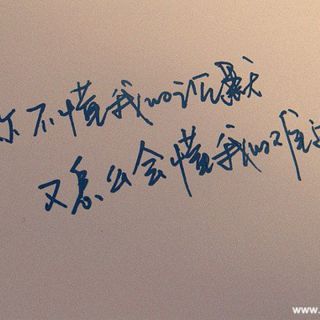 你不懂我的沉默
又怎么会懂我的难
www.